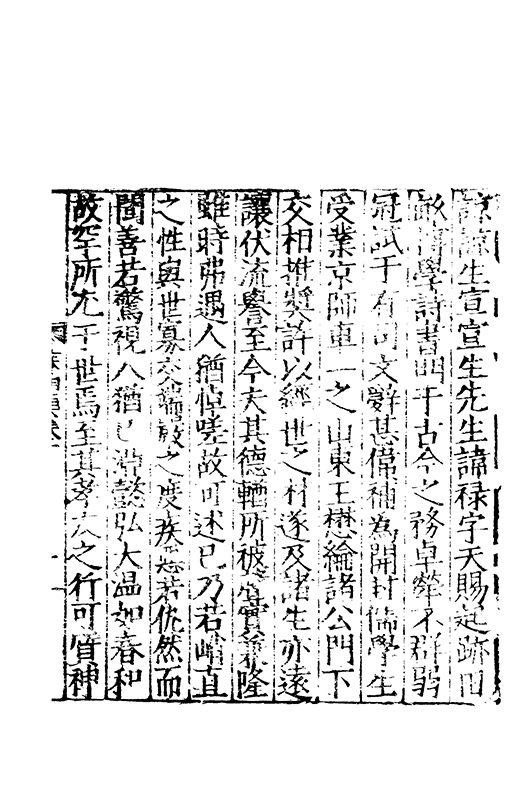 諒諒生宣宣生先生諱祿字天賜起跡田
畝博學詩書明于古今之務卓犖不群弱
冠試于有司文辭甚偉補為開封儒學生
受業京師車一之山東王懋綸諸公門下
交相推奬許以經世之材遂及諸生亦遠
讓伏流譽至今夫其德輶所被名實兼隆
雖時弗遇人猶悼嗟故可述已乃若峭直
之性與世寡交端毅之度疾惡若仇然而
聞善若驚視人猶己淵懿弘大温如春和
故罕所尤于世焉至其孝友之行可質神